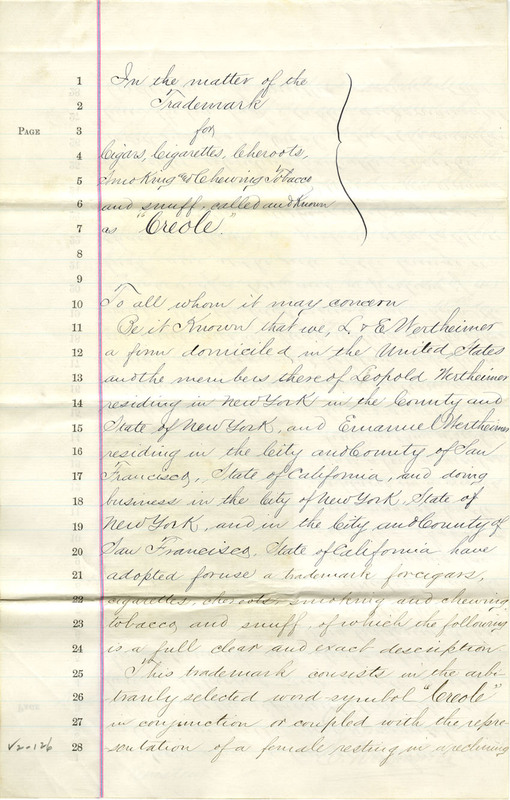 1 In the matter of the
2 Trademark
PAGE 3 for
4 Cigars, Cigarettes, Cheroots,
5 Smoking and Chewing Tobacco
6 and snuff, called and known
7 as "Creole."
8
9
10 To all whom it may concern
11 Be it Known that we, L & E Wertheimer
12 a firm domiciled in the United States
13 and the members thereof Leopold Wertheimer
14 residing in New York in the County and
15 State of New York, and Emanuel Wertheimer
16 residing in the City and County of San
17 Francisco, State of California, and doing
18 business in the City of New York, State of
19 New York, and in the City and County of
20 San Francisco, State of California have
21 adopted for use a trademark for cigars,
22 cigarettes, cheroots, smoking and chewing
23 tobacco and snuff, of which the following
24 is a full clear and exact description
25 This trademark consists in the arbi-
26 trarily selected word-symbol "Creole"
27 in conjunction or coupled with the repre-
V2-126 28 sentation of a female resting in a reclining